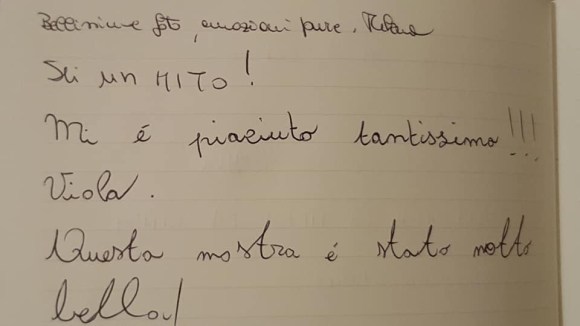 Bellissime foto, emozioni pure.
Sei un MITO!
Mi é piaciuto tantissimo!!!
Viola.
Questa mostra é stato molto
bella!